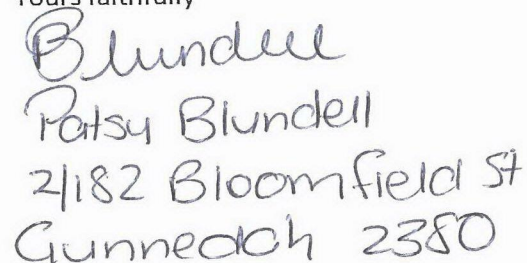 Yours faithfully
Blundell
Patsy Blundell
2/182 Bloomfield St
Gunnedah 2380